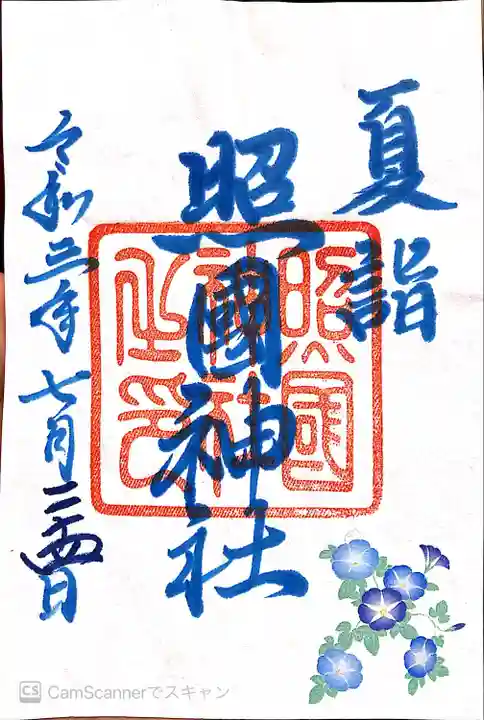 夏詣
照國神社
照國
神社
之印
令和三年七月二十四日
CS CamScannerでスキャン